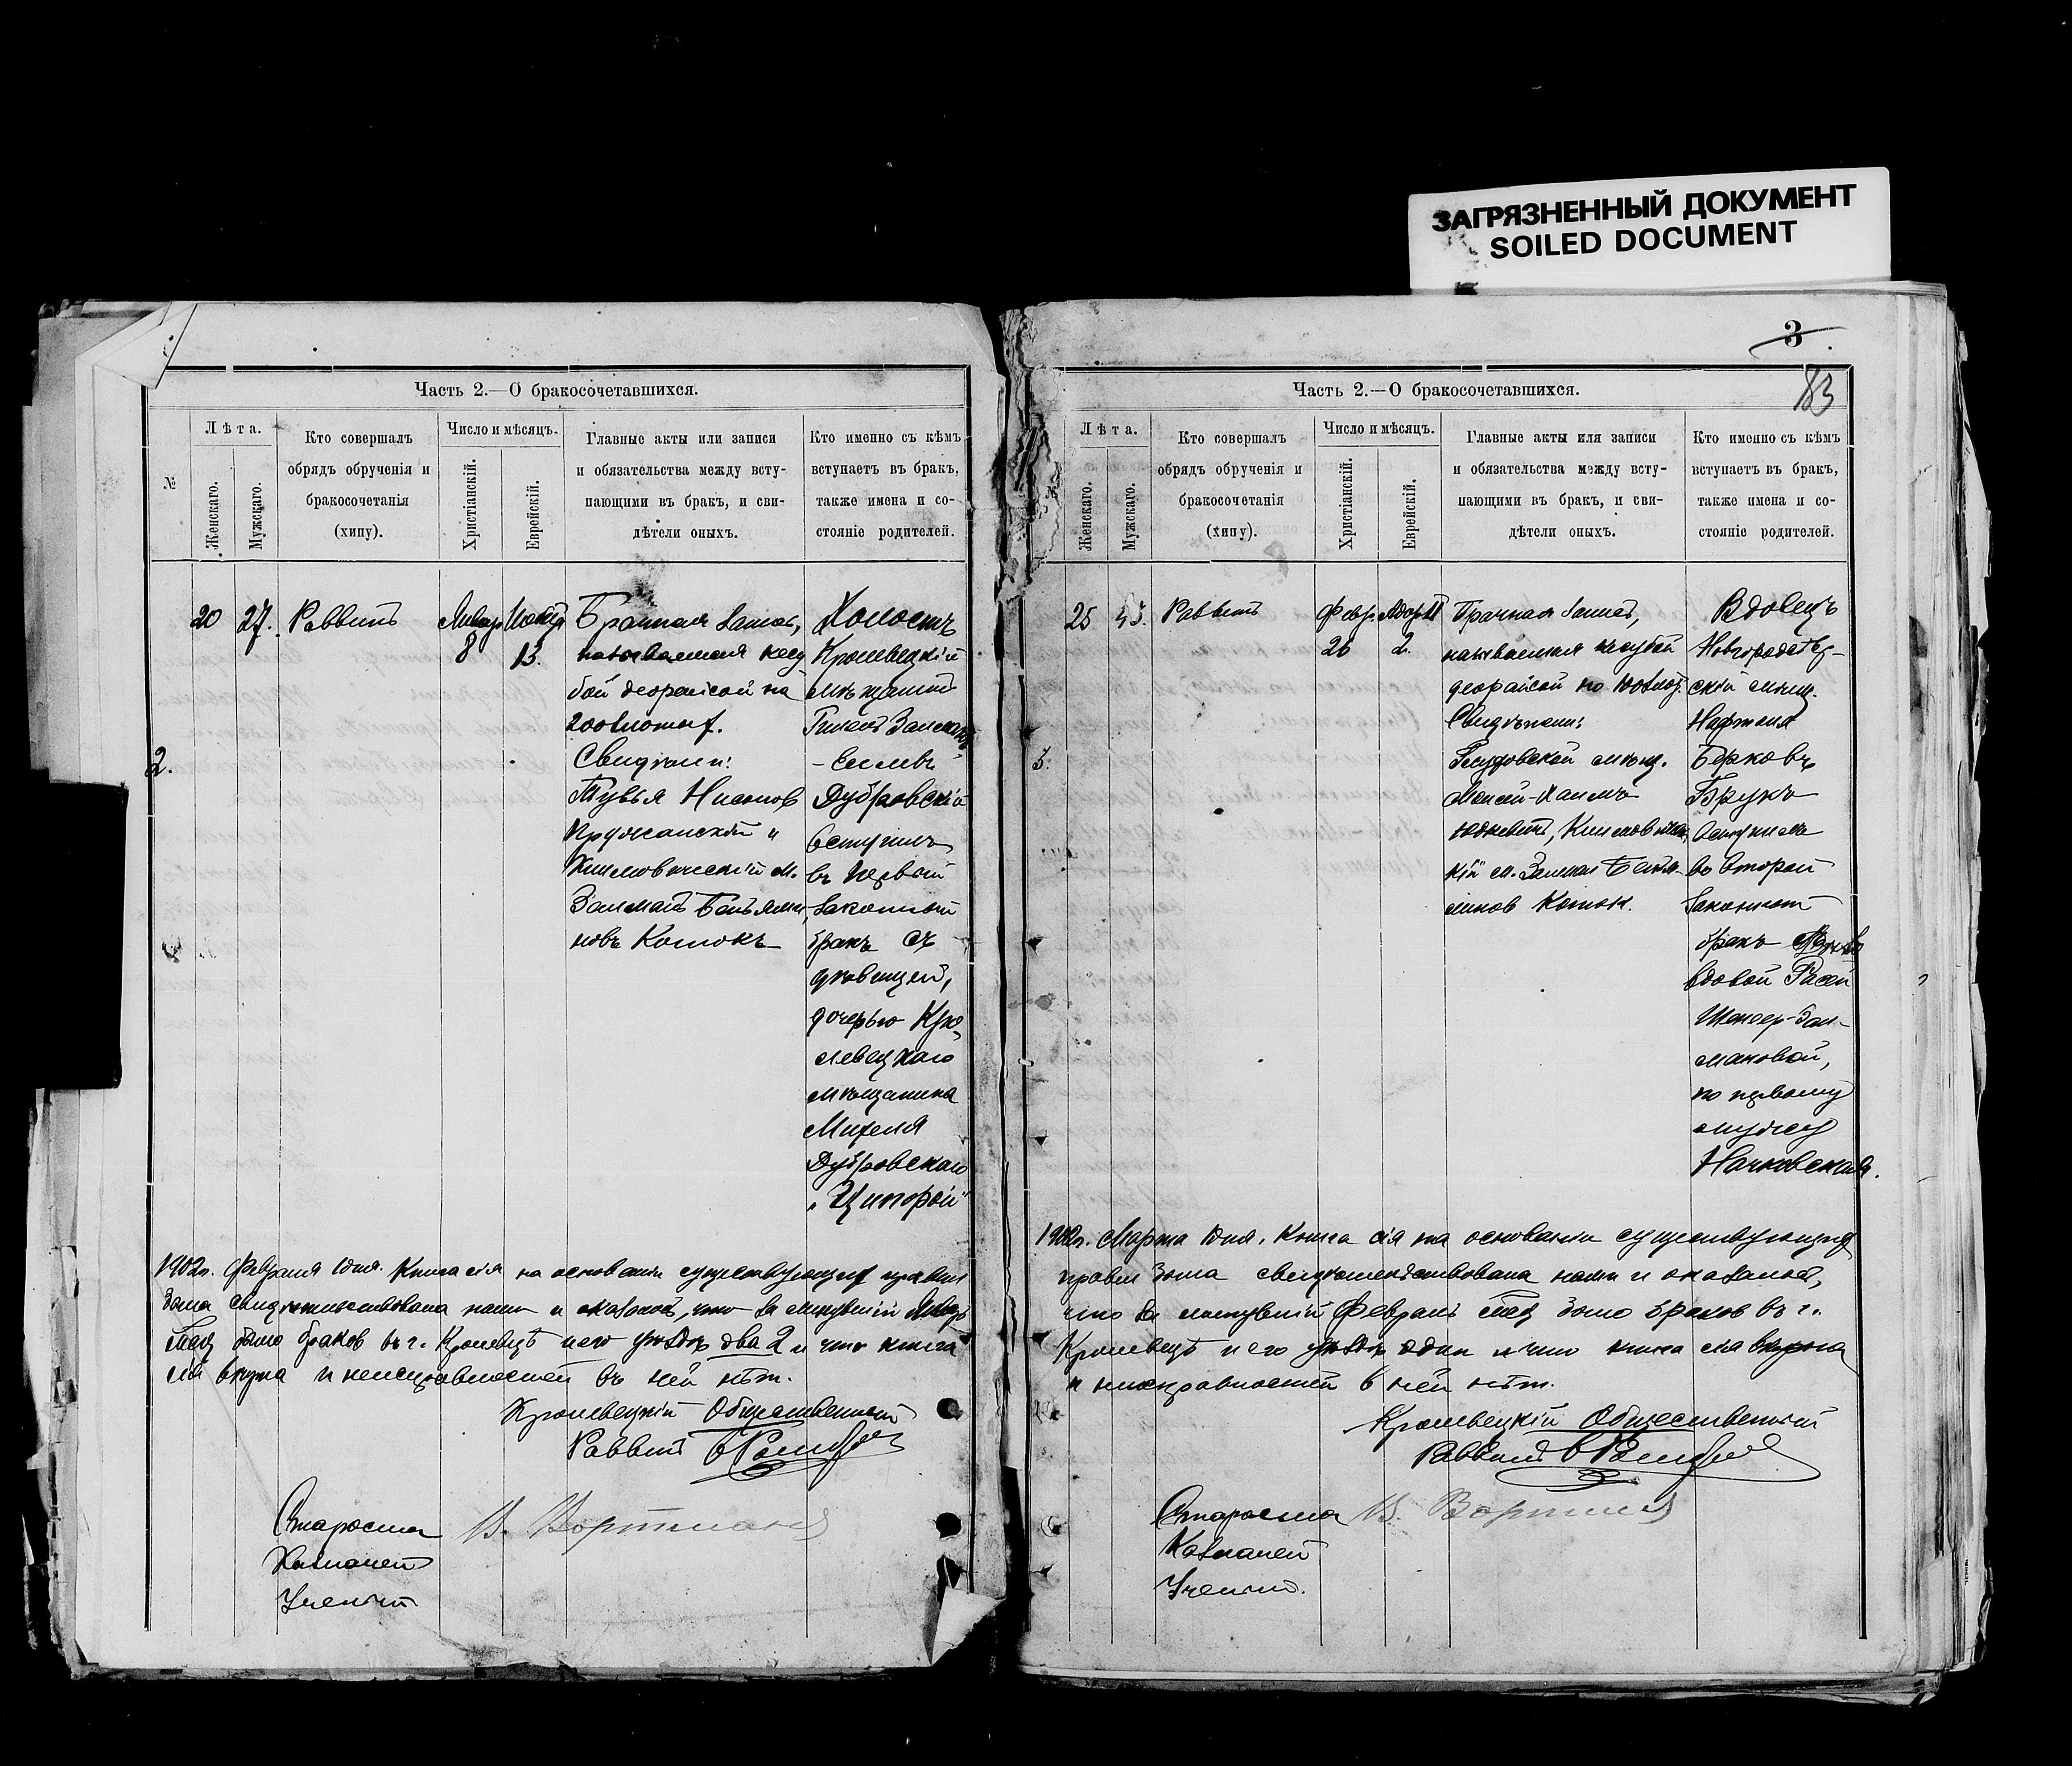 ЗАГРЯЗНЕННЫЙ ДОКУМЕНТ
SOILED DOCUMENT
Часть 2.—О бракосочетавшихся.
№
Лѣта.
Женскаго.
Мужскаго.
Кто совершалъ
обрядъ обрученія и
бракосочетанія
(хипу).
Число и мѣсяцъ.
Христіанскій.
Еврейскій.
Главные акты или записи
и обязательства между всту-
пающими въ бракъ, и сви-
дѣтели оныхъ.
Кто именно съ кѣмъ
вступаетъ въ бракъ,
также имена и со-
стояніе родителей.
2.
20
27.
Раввинъ
Январ.
8
13.
Брачная запись,
называемая кесу
бой деорайсой на
200 злотыхъ.
Свидѣтели:
Тувья Нисонов
Пружанскій и
Климовическій м.
Залманъ Беньями
новъ Котокъ
Холостъ
Кролевецкій
мѣщанинъ
Дубровскій
вступилъ
въ первый
законный
бракъ съ
дѣвицей,
дочерью Кро-
левецкаго
мѣщанина
Дубровскаго
„Ципорой“
1902г. Февраля 1 дня. Книга сія на основаніи существующихъ правил
была свидѣтельствована нами и оказалось, что за минувшій Январь
мсц было браков въ г. Кролевцѣ и его уѣздѣ два 2 и что книга
сія вѣрна и неисправностей въ ней нѣт.
Кролевецкій Общественный
Раввинъ
Староста В. Вортманъ
Казначей
Ученый
3
183
Часть 2.—О бракосочетавшихся.
№
Лѣта.
Женскаго.
Мужскаго.
Кто совершалъ
обрядъ обрученія и
бракосочетанія
(хипу).
Число и мѣсяцъ.
Христіанскій.
Еврейскій.
Главные акты или записи
и обязательства между всту-
пающими въ бракъ, и сви-
дѣтели оныхъ.
Кто именно съ кѣмъ
вступаетъ въ бракъ,
также имена и со-
стояніе родителей.
3.
25
43.
Раввинъ
Февр.
26
2.
Брачная запись,
называемая кесубой
деорайсой на 100 злот.
Свидѣтели:
мѣщ.
кій м. Залман Бенья-
минов Коток.
Вдовецъ
Новгородсѣвер-
скій мѣщ.
Нафтоля
Берковъ
Брукъ
вступилъ
во второй
законный
бракъ
вдовой Расей
мановой,
по первому
мужу
Начковская.
1902г. Марта 1 дня. Книга сія на основаніи существующихъ
правил была свидѣтельствована нами и оказалось,
что за минувшій Февраль мсц было браков въ г.
Кролевцѣ и его уѣздѣ один и что книга сія вѣрна
и неисправностей в ней нѣт.
Кролевецкій Общественный
Раввинъ
Староста В. Вортман
Казначей
Ученый.